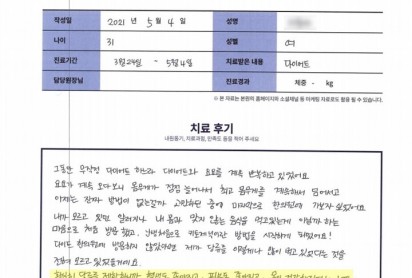 작성일 2021년 5월 4일 성명
나이 31 성별 여
진료기간 3월24일 - 5월4일 치료받은 내용 다이어트
담당원장님 진료경과 체중 - kg
※ 본 자료는 본원의 홈페이지와 소셜채널 등 마케팅 자료로도 활용 될 수 있습니다.
치료 후기
내원동기, 치료과정, 만족도 등을 적어 주세요
그동안 무작정 다이어트 하느라 다이어트와 요요를 계속 반복하고 있었어요.
요요가 계속 오다보니 몸무게가 점점 늘어나서 최고 몸무게를 계속해서 넘어서고
이제는 진짜 방법이 없는걸까 고민하던 중에 마지막으로 한의원에 가보자 싶었어요.
내가 모르고 있던 알러지나 내 몸과 맞지 않는 음식을 먹고있는게 이렇게 하는
마음으로 처음 방문 했고, 감량처음으로 키토제닉이라는 방법을 시작하게 되었어요!
한의원에 방문하지 않았다면 제가 당류를 이렇게나 많이 먹고 있었다는 것을
모르고 있었을거에요.